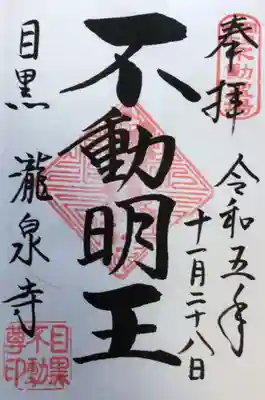 奉拝
令和五年
十一月二十八日
不動明王
目黒 瀧泉寺
目黒
不動
尊印